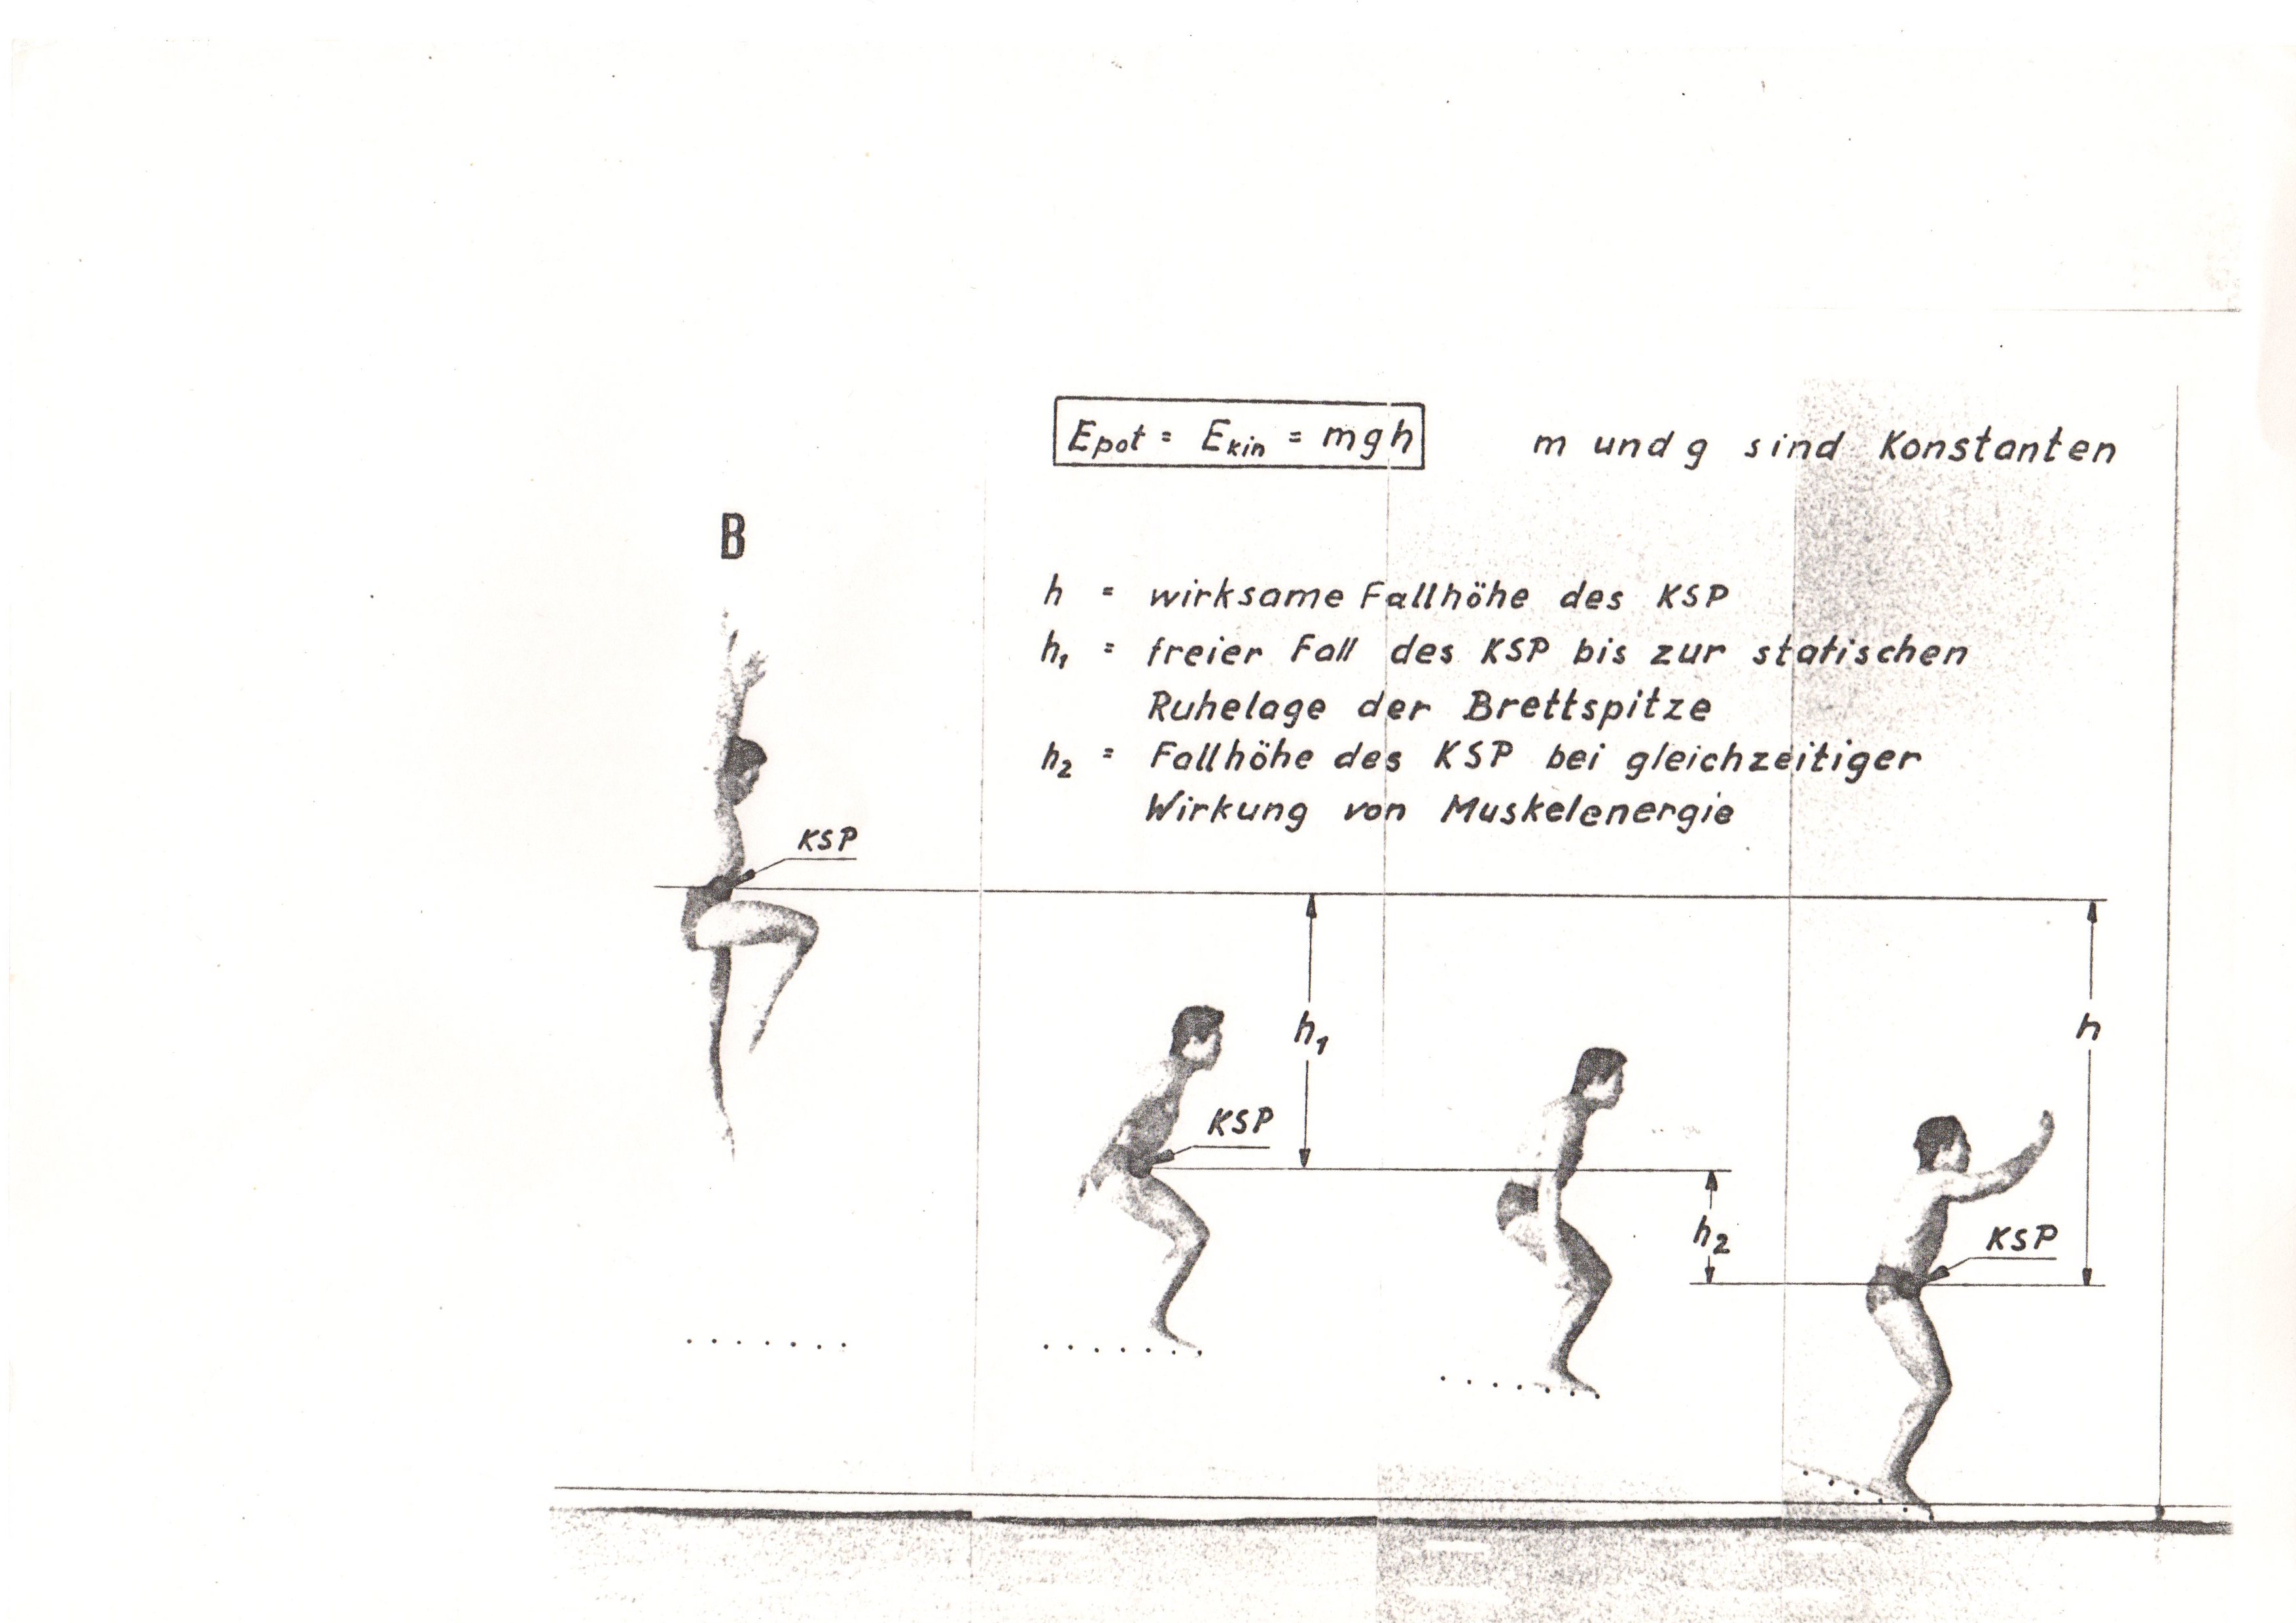 Epot = Ekin = mgh
m und g sind Konstanten
B
h = wirksame Fallhöhe des KSP
h₁ = freier Fall des KSP bis zur statischen
Ruhelage der Brettspitze
h₂ = Fallhöhe des KSP bei gleichzeitiger
Wirkung von Muskelenergie
KSP
h₁
h
KSP
h₂
KSP